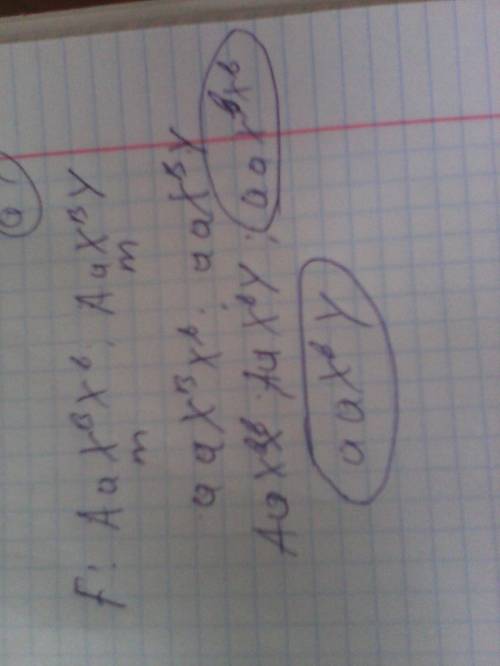 a
F: AaX^BX^b; AaX^BY
m m
aaX^BX^b; aaX^BY
AaX^bX^b; AaX^bY; aaX^bX^b
aaX^bY